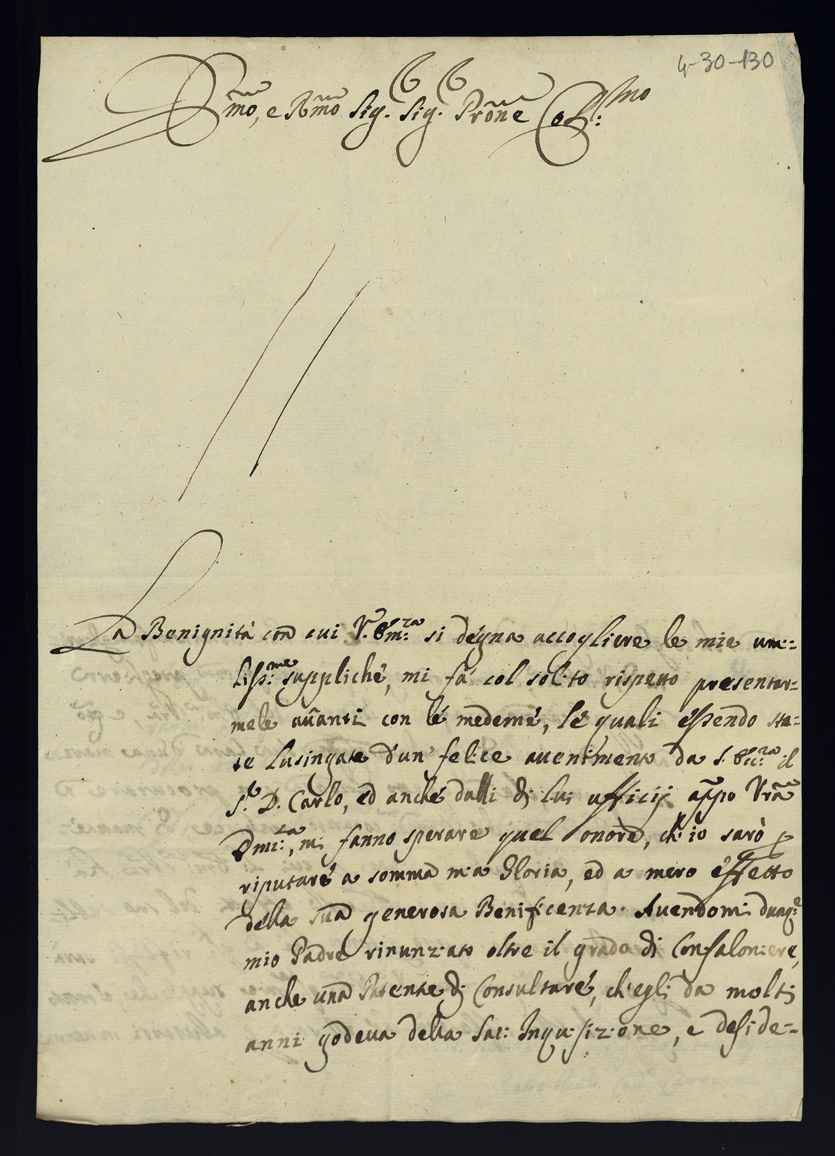 4-30-130
Emo, e Rmo Sig. Sig. Prone Colmo
La Benignità con cui V. Em:za si degna accogliere le mie umi:
liss:me suppliche, mi fà col solito rispetto presentar=
mele avanti con le medeme, le quali essendo sta=
te lusingate d'un' felice avenimento da S. Ecc:za il
Sr D. Carlo, ed anche dalli di lui ufficij appo Vra
Emi:za, mi fanno sperare quel onore, ch'io sarò p
riputare a somma mia Gloria, ed a mero effetto
della sua generosa Benificenza. Avendomi dunq:e
mio Padre rinunziato oltre il grado di Confaloniere,
anche una Patente di Consultore, ch'egli da molti
anni godeva della Sac: Inquisizione, e deside=